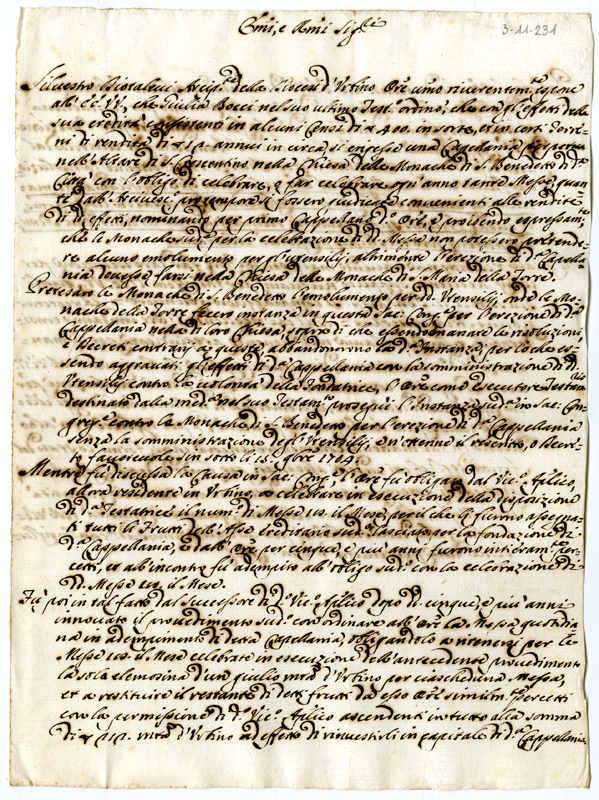 Emi, e Rmi Sig.ri
3-11-231
Siluestro Arcip.te della Diocesi d'Vrbino Ore vmo riuerentem.te espone
all' EE. VV., che Giulia Bocci nel suo vltimo Test.o ordinò, che con gl'effetti della
sua eredità consistenti in alcuni Censi di 400. in sorte, et in certi Terre-
ni di rendita di annui in circa si eregesse una Capellania perpetua
nell'Altare di S. nella Chiesa delle Monache di S. Benedetto di d.a
Città con l'obligo di celebrare, e far celebrare ogn'anno tante Messe, quan-
te dall' pro tempore si fossero giudicate convenienti alle rendite
di d. effetti, nominando per primo Cappellano d.o Ore, e proibendo espressam.te
che le Monache sud.e per la celebrazione di d. Messe non potessero pretende-
re alcuno emolumento per gl'utensilij, altrimente l'erezione di d.a Capella-
nia douesse farsi nella Chiesa delle Monache di S. Maria della Torre.
Pretesero le Monache di S. Benedetto l'emolumento per dd. Vtensilij, onde le Mo-
nache della Torre fecero instanza in questa Sac: Cong.e per l'erezione di d.a
Cappellania nella di loro Chiesa, sopra di che essendo emanate le resoluzioni,
e Decreti contrarij a queste, abbandonarno la d.a Instanza; per lo che es-
sendo aggrauati gl'effetti di d.a Cappellania con la somministrazione di d.i
Vtensilij contro la volontà della Fondatrice, l'Ore come esecutore Testam.rio
destinato dalla med.a nel suo Testam.to proseguì l'Instanza sud.a in Sac: Con-
greg.e contro le Monache di S. Benedetto per l'erezione di d.a Cappellania
senza la somministrazione degl'Vtensilij, e n'ottenne il rescritto, o Decre-
to fauoreuole, sin sotto li 15. 9bre 1704.
Mentre fù discussa la Causa in Sac: Cong.e, l'Ore fù obligato dal Vic.o Aplico,
allora residente in Vrbino, a celebrare in esecuzione della disposizione
di d.a Testatrice il num.o di Messe il Mese, per il che li furono assegna-
ti tutti li Frutti dell'Asse ereditario sud.o lasciato per la fondazione di
d.a Cappellania, e dall' Ore per cinque, e più anni furono intieram.te per-
cetti, et all'incontro fù adempito all'obligo sud.o con la celebrazione di
dd. Messe il Mese.
Fù poi in tal fatto dal Successore di d.o Vic.o Aplico dopo d.i cinque, e più anni
innouato il prouedimento sud.o con ordinare all'Ore la Messa quotidia-
na in adempimento di detta Capellania, obligandolo a ritenersi per le
Messe il Mese celebrate in esecuzione dell'antecedente prouedimento
la sola elemosina d'un giulio mta d'Vrbino per ciascheduna Messa,
et a restituire il restante di detti frutti da esso Ore similm.te percetti
con la permissione di d.o Vic.o Aplico ascendenti in tutto alla somma
di mta d'Vrbino ad effetto di rinuestirli in capitale di d.a Cappellania,